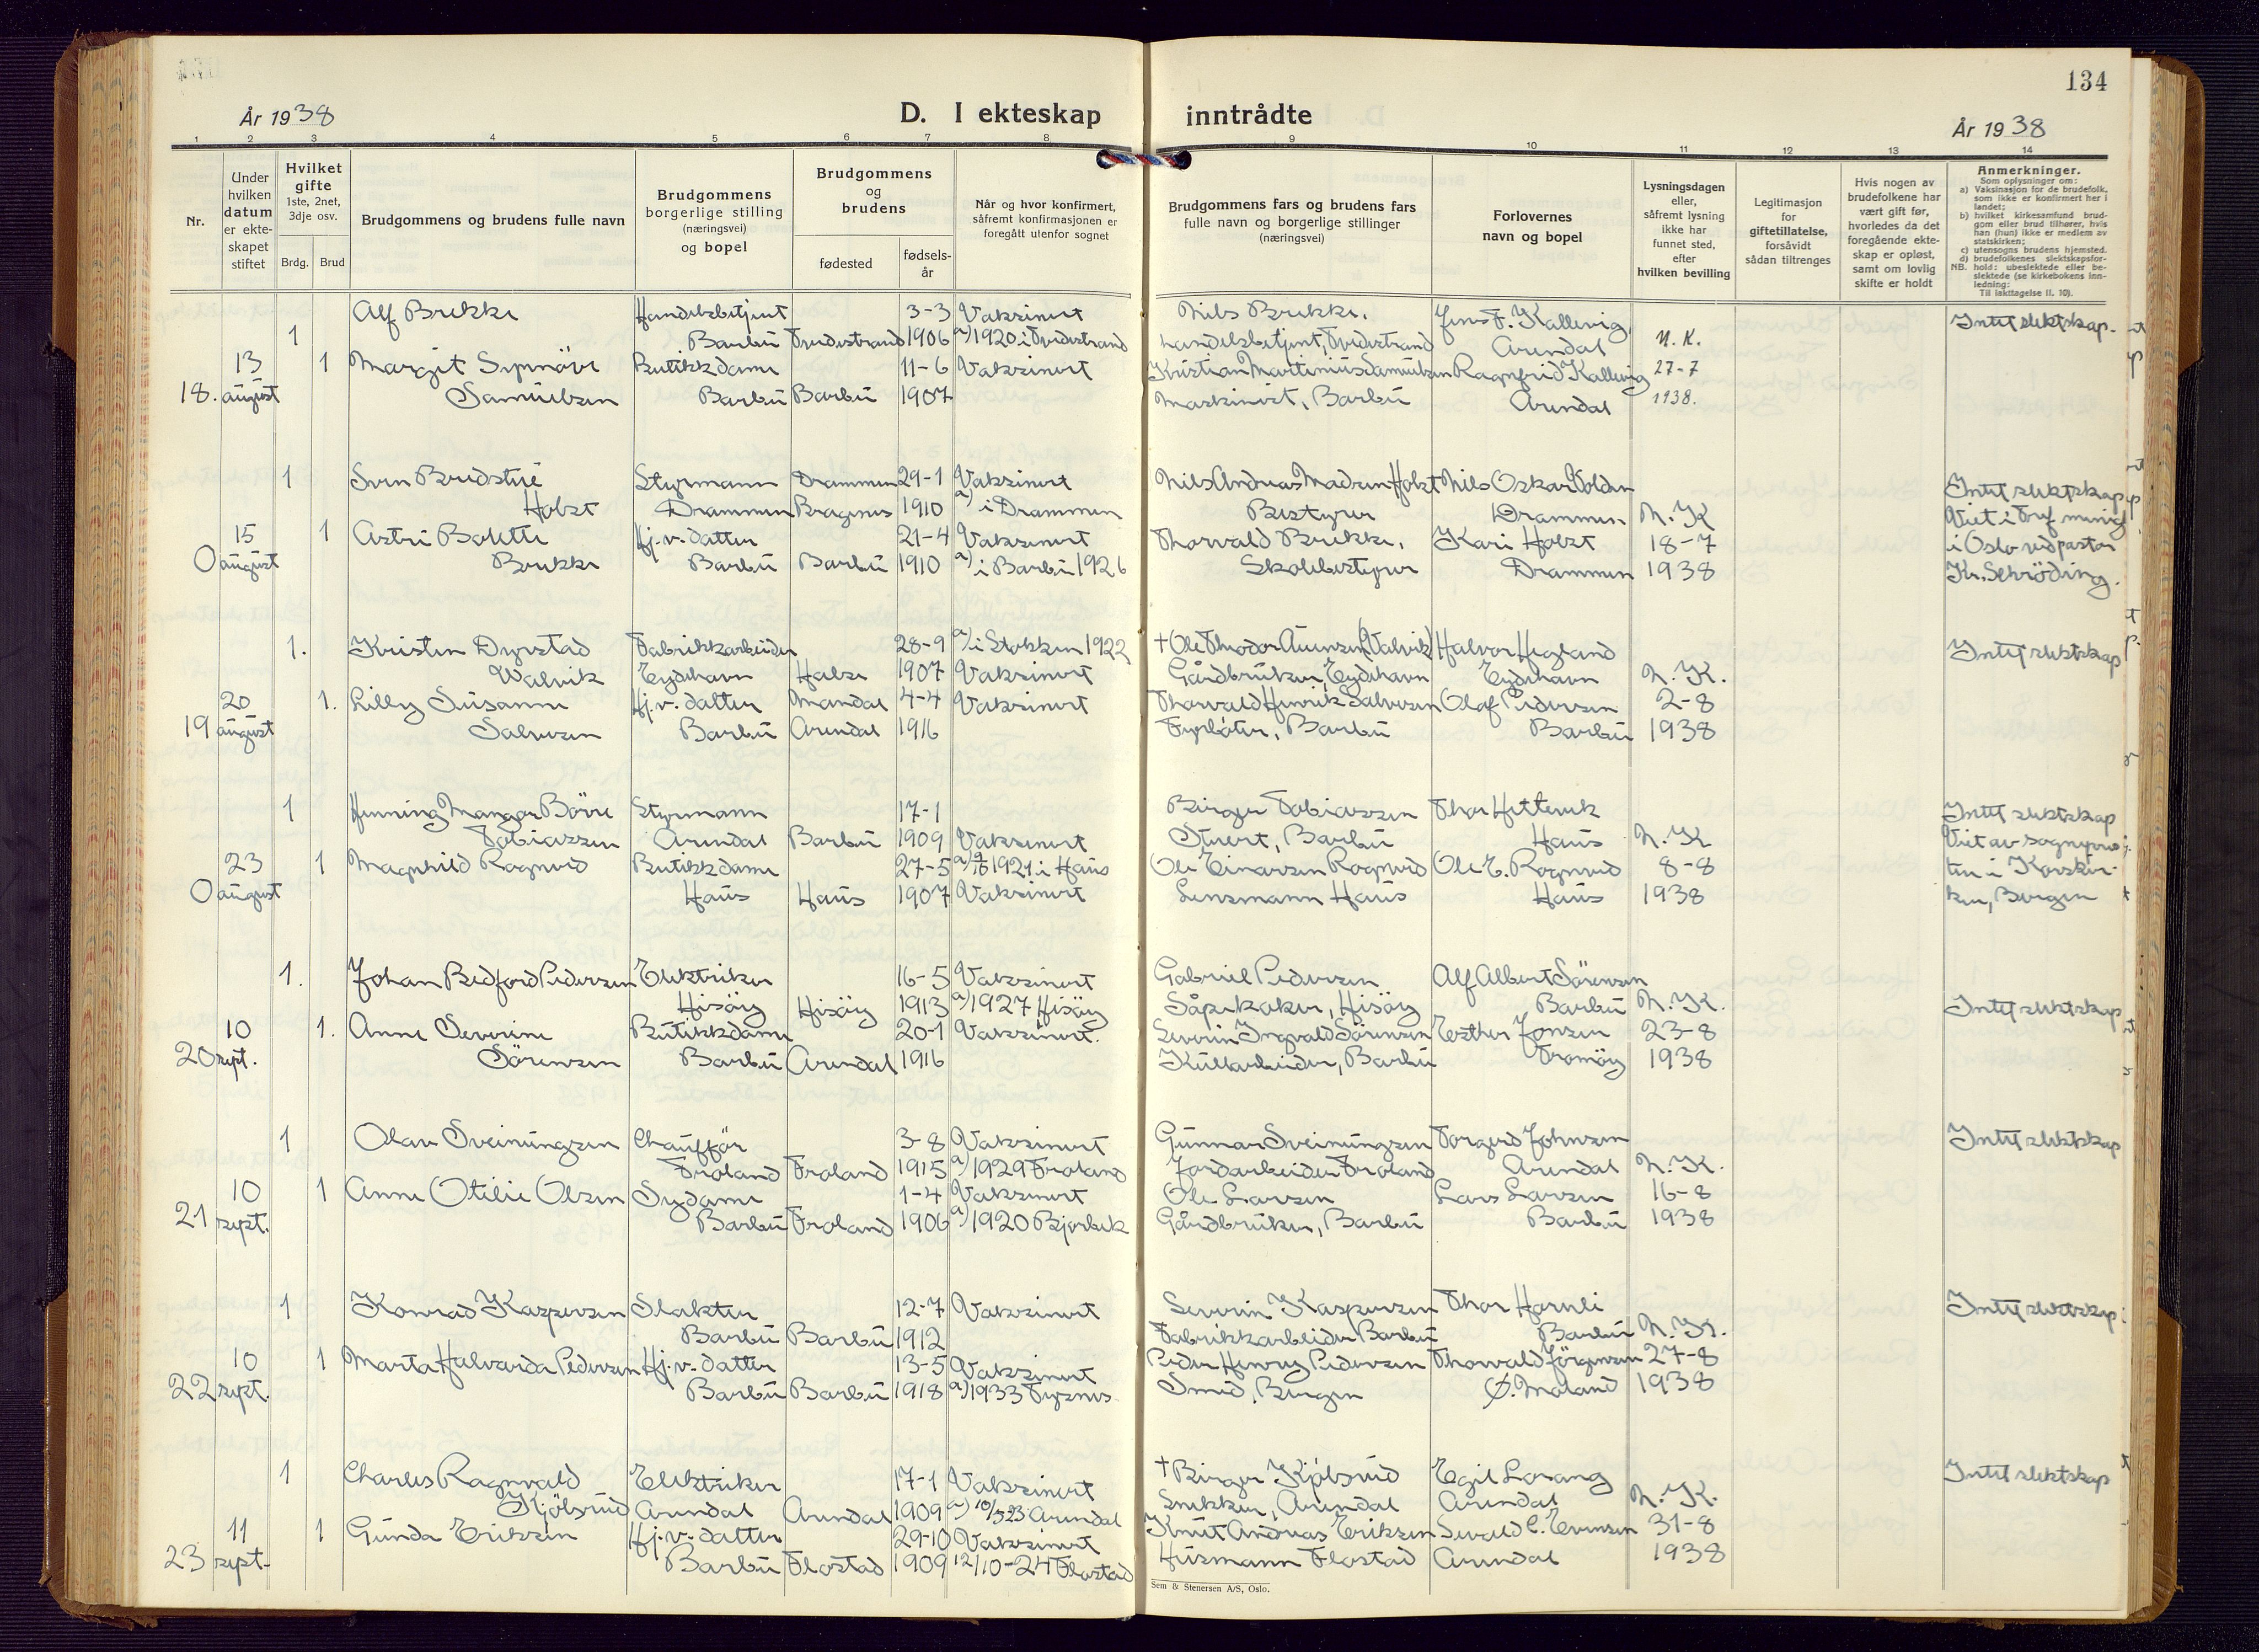 134
År 1938
D. I ekteskap inntrådte
År 1938
1 2 3 4 5 6 7 8 9 10 11 12 13 14
Nr.
Under
hvilken
datum
er ekte-
skapet
stiftet
Hvilket
gifte
1ste, 2net,
3dje osv.
Brdg. Brud
Brudgommens og brudens fulle navn
Brudgommens
borgerlige stilling
(næringsvei)
og bopel
Brudgommens
og
brudens
fødested
fødsels-
år
Når og hvor konfirmert,
såfremt konfirmasjonen er
foregått utenfor sognet
Brudgommens fars og brudens fars
fulle navn og borgerlige stillinger
(næringsvei)
Forlovernes
navn og bopel
Lysningsdagen
eller,
såfremt lysning
ikke har
funnet sted,
efter
hvilken bevilling
Legitimasjon
for
giftetillatelse,
forsåvidt
sådan tiltrenges
Hvis nogen av
brudefolkene har
vært gift før,
hvorledes da det
foregående ekte-
skap er opløst,
samt om lovlig
skifte er holdt
Anmerkninger.
Som oplysninger om:
a) Vaksinasjon for de brudefolk,
som ikke er konfirmert her i
landet;
b) hvilket kirkesamfund brud-
gom eller brud tilhører, hvis
han (hun) ikke er medlem av
statskirken;
c) utensogns brudens hjemsted.
d) brudefolkenes slektskapsfor-
NB. hold: ubeslektede eller be-
slektede (se kirkebokens inn-
ledning:
Til iakttagelse II. 10).
Alf Brekke Handelsbetjent 3-3 Vaksinert Nils Brekke, Jens F. Kallevig Intet slektskap.
1 Barbu Tvedestrand 1906 a) 1920 i Tvedestrand handelsbetjent, Tvedestrand Arendal N.K.
13 1 Margit Synnöve Butikkdame 11-6 Vaksinert Kristian Martinius Samuelsen Ragnfrid Kallevig 27-7
18. august Samuelsen Barbu Barbu 1907 Maskinist, Barbu Arendal 1938.
1 Sven Bredstue Styrmann Drammen 29-1 Vaksinert Nils Andreas Madsen Holst Nils Oskar Holden Intet slektskap
Holst Drammen Bragenes 1910 a) i Drammen Bestyrer Drammen N.K Viet i Tref menig
15 1 Astri Bolette Hj.v. datter 21-4 Vaksinert Thorvald Brekke, Kari Holst 18-7 i Oslo ved pastor
0 august Brekke Barbu Barbu 1910 a) i Barbu 1926 Skolebestyrer Drammen 1938 Kr. Schröding.
1. Kristen Dyrstad Fabrikkarbeider 28-9 a) i Stokken 1922 † Ole Theodor Aanensen (Valvik) Halvor Hegland Intet slektskap
Valvik Eydehavn Halse 1907 Vaksinert Gårdbruker, Eydehavn Eydehavn N.K.
20 1. Lilly Susanne Hj.v. datter Mandal 4-4 Vaksinert Thorvald Henrik Salvesen Olaf Pedersen 2-8
19 august Salvesen Barbu Arendal 1916 Fyrböter, Barbu Barbu 1938
1 Henning Mangor Börre Styrmann 17-1 Birger Tobiassen Thor Hetterik Intet slektskap
Tobiassen Arendal Barbu 1909 Vaksinert Stuert, Barbu Haus N.K Viet av sogneprœ
23 1 Magnhild Rognved Butikkdame 27-5 a) 1921 i Haus Ole Einarsen Rognved Ole E. Rognved 8-8 ten i Korskir-
0 august Haus Haus 1907 Vaksinert Lensmann Haus Haus 1938 ken, Bergen
1. Johan Bedford Pedersen Elektriker 16-5 Vaksinert Gabriel Pedersen Alf Albert Sörensen
Hisöy Hisöy 1913 a) 1927 Hisöy Såpekoker, Hisöy Barbu N.K. Intet slektskap
10 1. Anne Severine Butikkdame 20-1 Vaksinert. Severin Ingvald Sörensen Esther Jonsen 23-8
20 sept. Sörensen Barbu Arendal 1916 Kullarbeider, Barbu Tromöy 1938
1 Olav Sveinungsen Chaufför 3-8 Vaksinert Gunnar Sveinungsen Torgerd Johnsen Intet slektskap
Froland Froland 1915 a) 1929 Froland Jordarbeider Froland Arendal N.K.
10 1 Anne Otilie Olsen Sydame 1-4 Vaksinert Ole Larsen Lars Larsen 16-8
21 sept. Barbu Froland 1906 a) 1920 Bjorbek Gårdbruker, Barbu Barbu 1938
1 Konrad Kaspersen Slakter 12-7 Vaksinert Severin Kaspersen Thor Hornli Intet slektskap
Barbu Barbu 1912 Fabrikkarbeider Barbu Barbu N.K.
10 1 Marta Halvarda Pedersen Hj.v. datter 13-5 Vaksinert Peder Henry Pedersen Thorvald Jörgensen 27-8
22 sept. Barbu Barbu 1918 a) 1933 Fyresnes Smed, Bergen Ø. Moland 1938
1 Charles Ragnvald Elektriker 17-1 Vaksinert † Birger Kjölsrud Egil Lorang Intet slektskap
Kjölsrud Arendal Arendal 1909 a) 10/5 23 Arendal Snekker, Arendal Arendal N.K.
11 1 Gunda Eriksen Hj.v. datter 29-10 Vaksinert Knut Andreas Eriksen Sevald C. Evensen 31-8
23 sept. Barbu Flostad 1909 12/10-24 Flostad Husmann Flostad Arendal 1938
Sem & Stenersen A/S, Oslo.